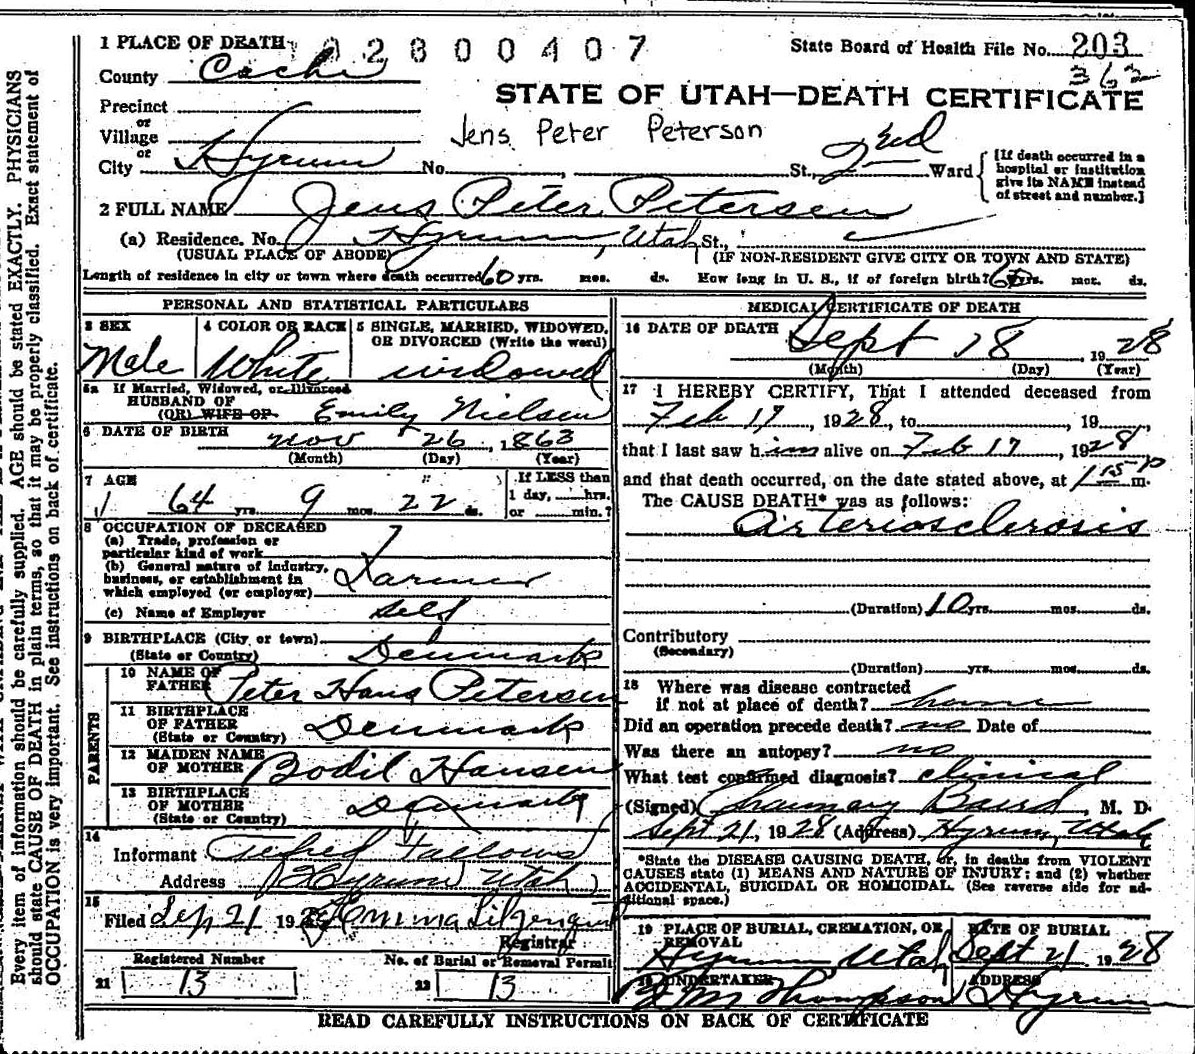 1 PLACE OF DEATH 02800407 State Board of Health File No. 203
County Cache 362
STATE OF UTAH—DEATH CERTIFICATE
Precinct
or
Village
Jens Peter Peterson
or
City Hyrum No. , St., 2nd Ward
[If death occurred in a hospital or institution give its NAME instead of street and number.]
2 FULL NAME Jens Peter Petersen
(a) Residence. No. Hyrum, Utah St.,
(USUAL PLACE OF ABODE) (IF NON-RESIDENT GIVE CITY OR TOWN AND STATE)
Length of residence in city or town where death occurred 60 yrs. mos. ds. How long in U. S., if of foreign birth? 60 yrs. mos. ds.
PERSONAL AND STATISTICAL PARTICULARS
3 SEX 4 COLOR OR RACE 5 SINGLE, MARRIED, WIDOWED,
OR DIVORCED (Write the word)
Male White widowed
5a If Married, Widowed, or Divorced
HUSBAND OF
(OR) WIFE OF Emily Nielsen
6 DATE OF BIRTH Nov 26, 1863
(Month) (Day) (Year)
7 AGE If LESS than
64 yrs. 9 mos. 22 ds. 1 day, hrs.
or min.?
8 OCCUPATION OF DECEASED
(a) Trade, profession or
particular kind of work
(b) General nature of industry,
business, or establishment in
which employed (or employer) Farmer
(c) Name of Employer self
9 BIRTHPLACE (City or town)
(State or Country) Denmark
PARENTS
10 NAME OF
FATHER Peter Hans Petersen
11 BIRTHPLACE
OF FATHER
(State or Country) Denmark
12 MAIDEN NAME
OF MOTHER Bodil Hansen
13 BIRTHPLACE
OF MOTHER
(State or Country) Denmark
14
Informant Fallows
Address Hyrum Utah
15
Filed Sep 21 192
Registrar
Registered Number No. of Burial or Removal Permit
21 13 22 13
MEDICAL CERTIFICATE OF DEATH
16 DATE OF DEATH Sept 18, 1928
(Month) (Day) (Year)
17 I HEREBY CERTIFY, That I attended deceased from
Feb 17, 1928, to , 19 ,
that I last saw him alive on Feb 17, 1928
and that death occurred, on the date stated above, at m.
The CAUSE DEATH* was as follows:
Arteriosclerosis
(Duration) 10 yrs. mos. ds.
Contributory
(Secondary)
(Duration) yrs. mos. ds.
18 Where was disease contracted
if not at place of death? home
Did an operation precede death? no Date of
Was there an autopsy? no
What test confirmed diagnosis? clinical
(Signed) Baird, M. D.
Sept 21, 1928 (Address) Hyrum, Utah
*State the DISEASE CAUSING DEATH, or, in deaths from VIOLENT
CAUSES state (1) MEANS AND NATURE OF INJURY; and (2) whether
ACCIDENTAL, SUICIDAL OR HOMICIDAL. (See reverse side for ad-
ditional space.)
19 PLACE OF BURIAL, CREMATION, OR DATE OF BURIAL
REMOVAL
Hyrum Utah Sept 21 1928
20 UNDERTAKER ADDRESS
Thompson Hyrum
READ CAREFULLY INSTRUCTIONS ON BACK OF CERTIFICATE
Every item of information should be carefully supplied. AGE should be stated EXACTLY. PHYSICIANS
should state CAUSE OF DEATH in plain terms, so that it may be properly classified. Exact statement of
OCCUPATION is very important. See instructions on back of certificate.